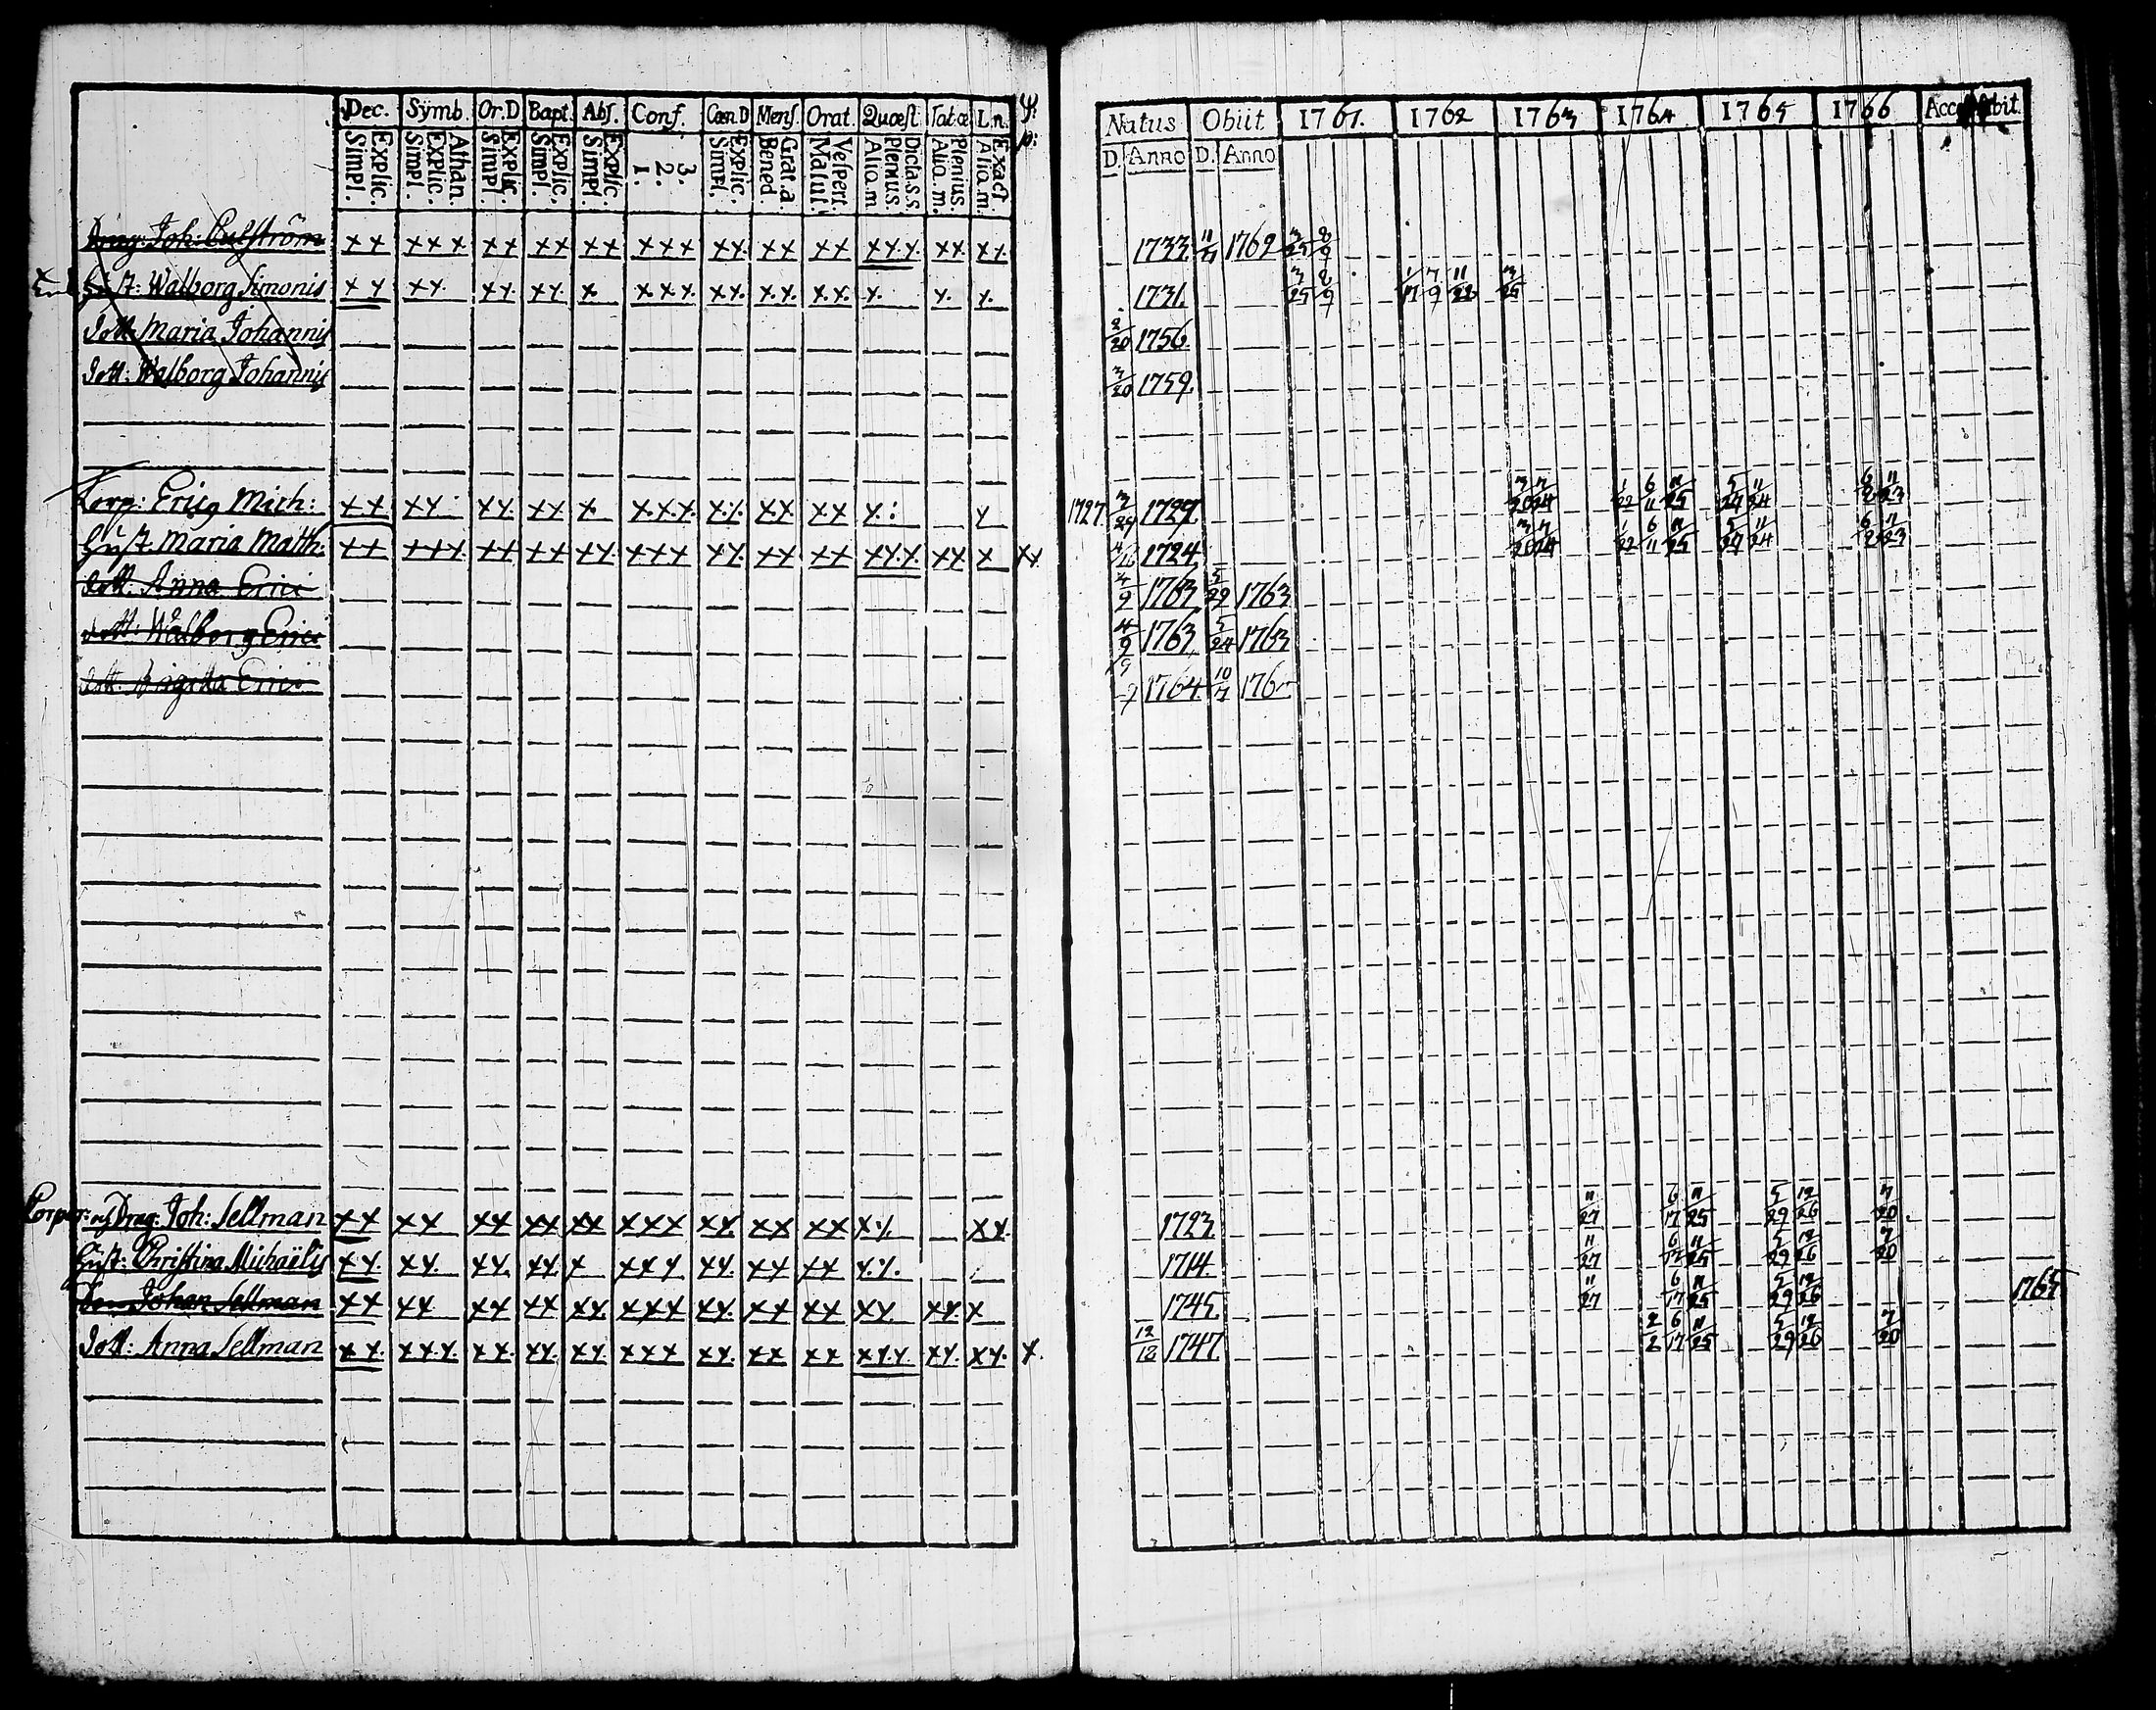 Dec. Symb. Or.D Bapt. Abs. Conf. Cœn.D Mens. Orat. Quæst. Tab.œ L.n. Y. p:
Explic. Simpl. Athan. Explic. Simpl. Explic. Simpl. Explic. Simpl. Explic. Simpl. 3. 2. 1. Explic. Simpl. Grat. a. Bened. Vespert. Matut. Dicta.s.s. Plenius. Alia.m. Plenius. Alia.m. Exact Alia.m.
Natus Obiit 1761. 1762 1763 1764 1765 1766 Acces. Abit.
D. Anno D. Anno
Drag: Joh: x x x x x x x x x x x x x x x x x x x x x x x x x x x 1733. 11/ 1762 3/25 8/9
Enk. Hust: Walborg Simonis x x x x x x x x x x x x x x x x x x x x x 1731. 3/25 8/9 1/17 7/9 11/22 3/25
Dott: Maria Johannis 2/20 1756.
Dott: Walborg Johannis 3/20 1759.
Korp: Erig Mich: x x x x x x x x x x x x x x x x x x x x 1727. 3/29 1729. 3/20 7/24 1/22 6/11 11/25 5/27 11/24 6/2 11/23
Hust. Maria Matth: x x x x x x x x x x x x x x x x x x x x x x x x x x x x 1724. 3/20 7/24 1/22 6/11 11/25 5/27 11/24 6/2 11/23
dott. Anna Erici 4/9 1763 5/29 1763
dott: Walborg Erici 4/9 1763 5/24 1763
dott. Brigitta Erici 1764. 10/7
Corpor: Drag: Joh: Sellman x x x x x x x x x x x x x x x x x x x x x x x 1723. 11/27 6/17 11/25 5/29 12/26 7/20
Hust: Christina Michaëlis x x x x x x x x x x x x x x x x x x x x 1714. 11/27 6/17 11/25 5/29 12/26 7/20
Son Johan Sellman x x x x x x x x x x x x x x x x x x x x x x x x 1745. 11/27 6/17 11/25 5/29 12/26 1765
Dott: Anna Sellman x x x x x x x x x x x x x x x x x x x x x x x x x x x x 12/18 1747. 2/2 6/17 11/25 5/29 12/26 7/20